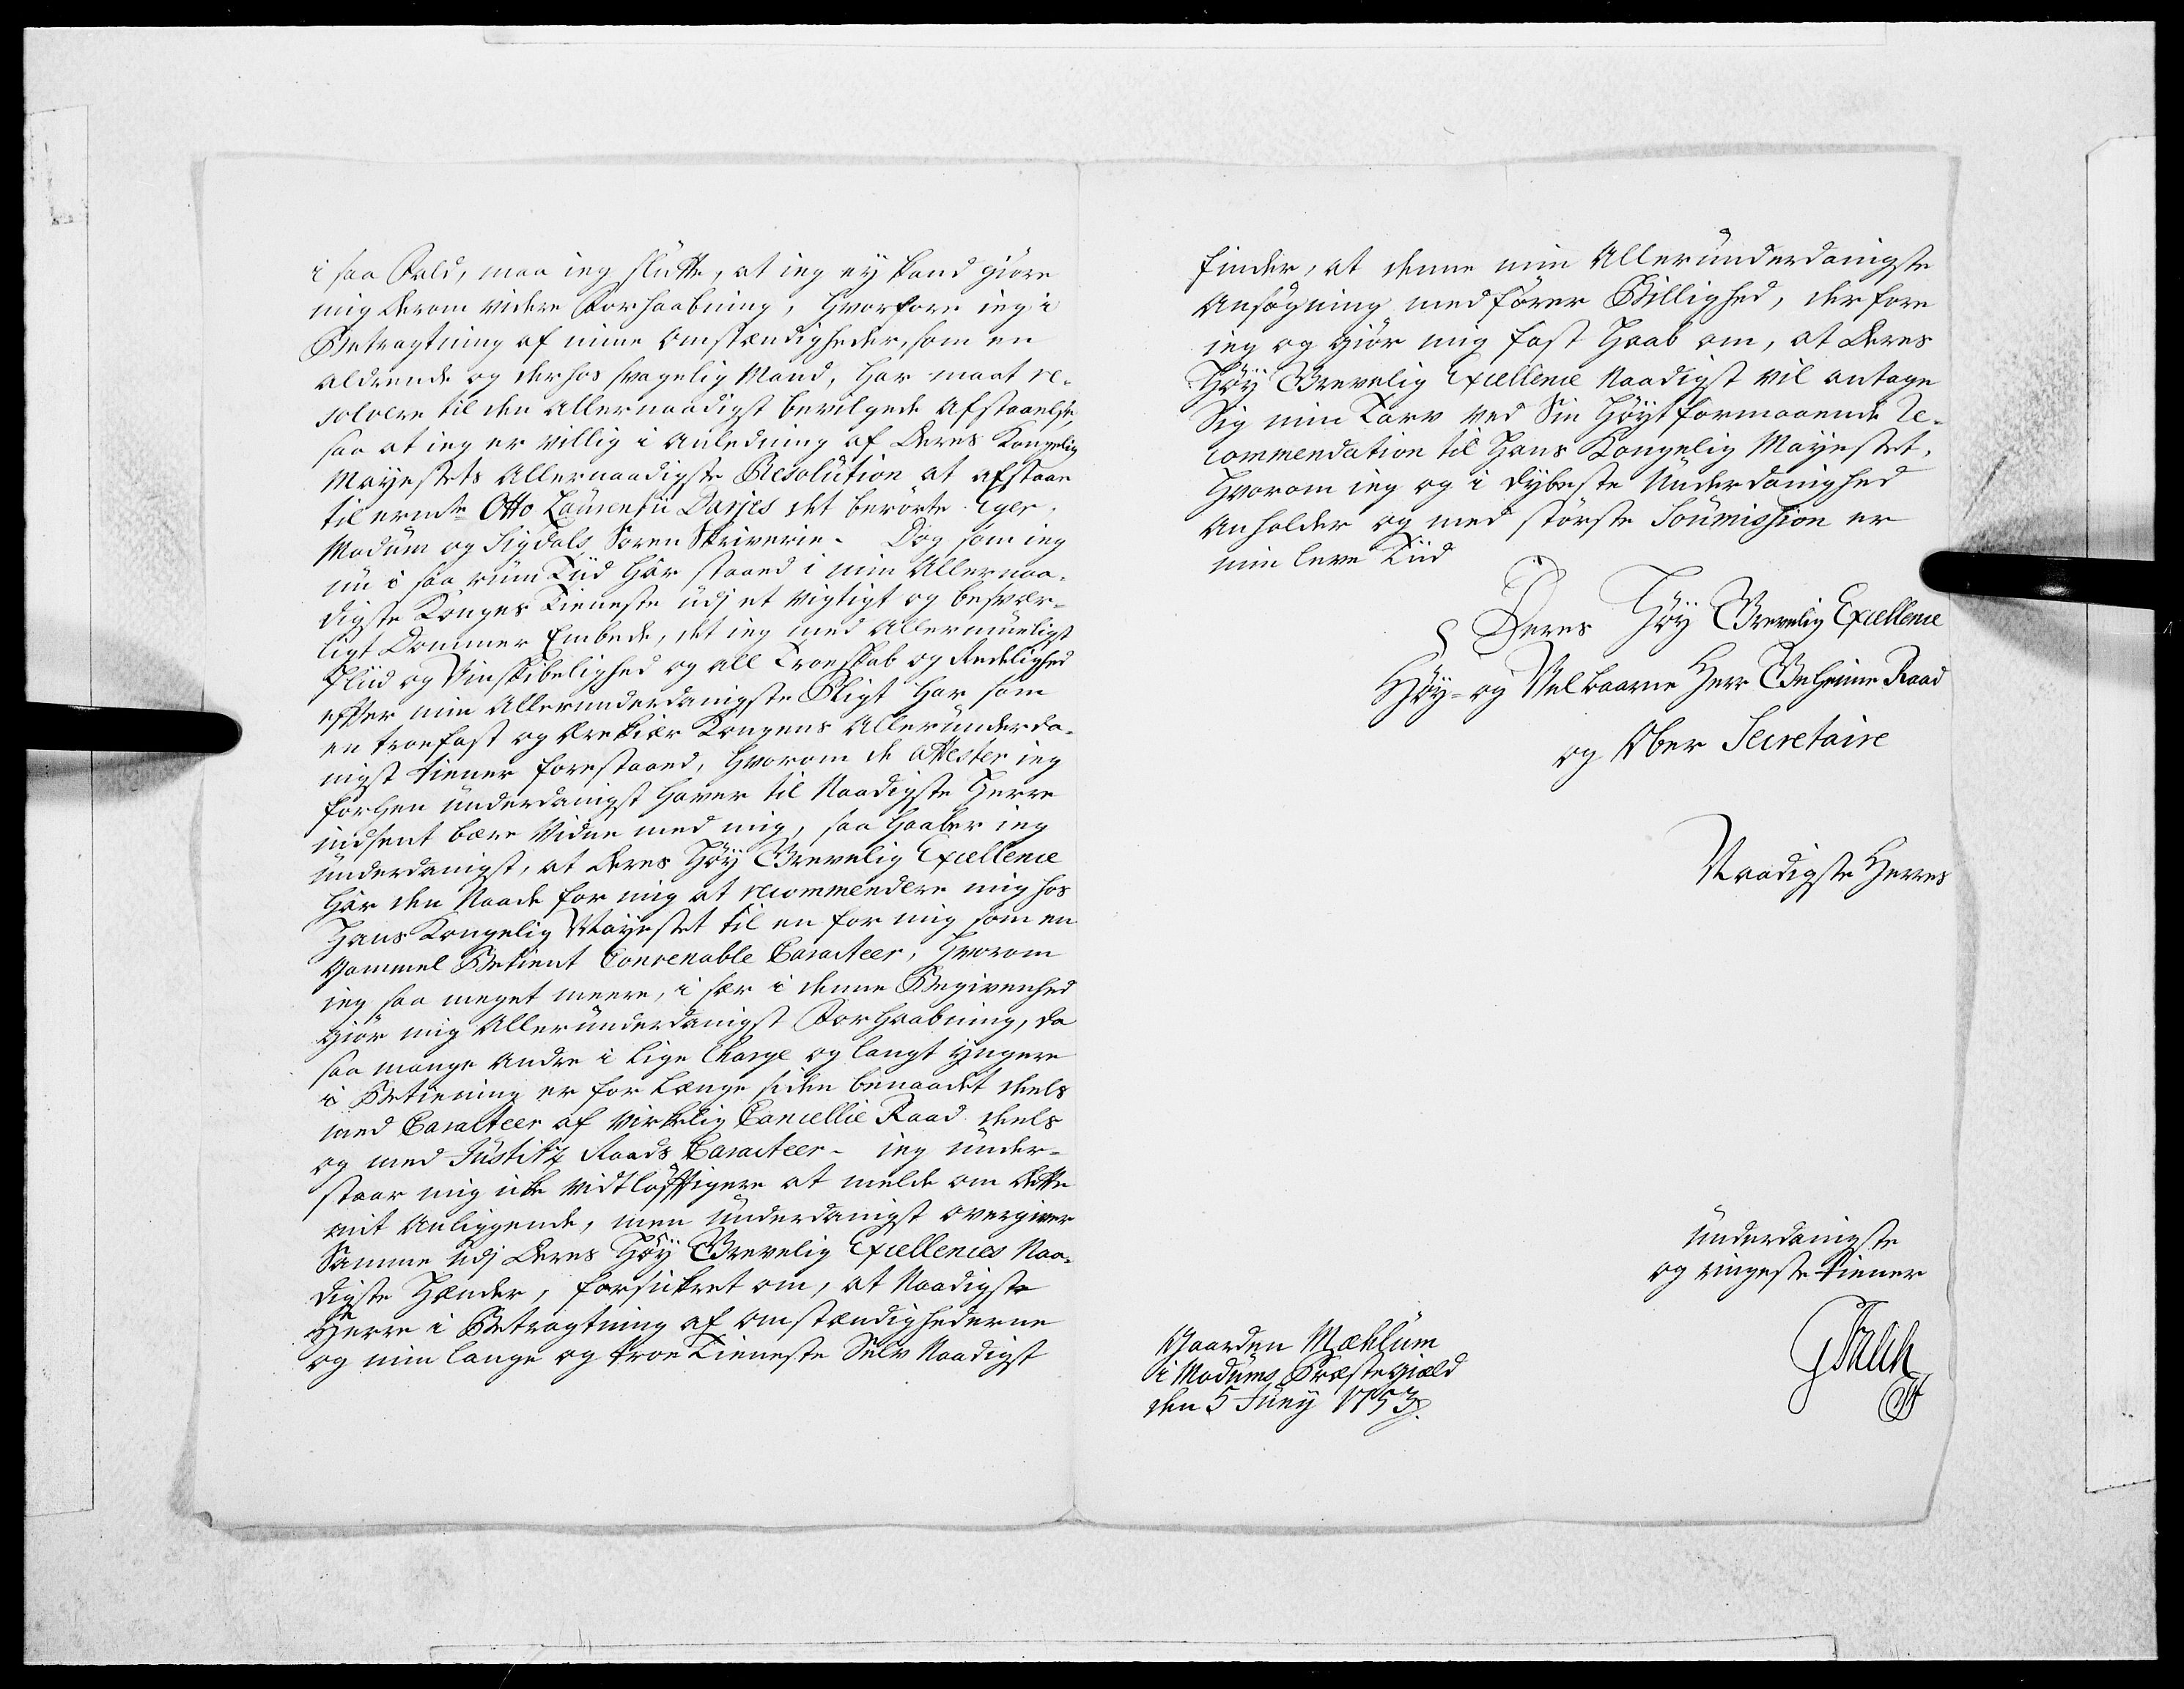 i saa Fald, maa ieg slutte, at ieg ey kand giøre
mig derom videre Forhaabning, hvorfore ieg i
Betragtning af mine omstændigheder, som en
aldrende og derhos svagelig Mand, har maat re¬
solvere til den Allernaadigst bevilgede Afstaaelse,
saa at ieg er villig i Anledning af Deres Kongelig
Mayestets Allernaadigste Resolution at afstaae
til ermte Otto Laurentii Darjes det berørte Eger,
Modum og Sigdals Soren Skriverie. Dog som ieg
nu i saa rum Tiid har staaed i min Allernaa¬
digste Konges Tieneste udj et vigtigt og besvær¬
ligt Dommer Embede, det ieg med Allermueligst
Fliid og Vinskibelighed og all Troeskab og Redelighed
effter min Allerunderdanigste Pligt har som
en troefast og Ærekiær Kongens Allerunderda¬
nigst tiener forestaaed, hvorom de Attester ieg
forhen underdanigst haver til Naadigste Herre
indsent bære Vidne med mig, saa haaber ieg
underdanigst, at Deres Høy Grevelig Excellence
har den Naade for mig at recommendere mig hos
Hans Kongelig Mayestet til en for mig som en
gammel Betient Convenable Caracteer, hvorom
ieg saa meget meere, i sær i denne Begivenhed
giør mig Allerunderdanigst Forhaabning, da
saa mange andre i lige Charge og langt yngere
i Betiening er for længe siden benaadet deels
med Caracteer af virkelig Cancellie Raad deels
og med Justitz Raads Caracteer. ieg under¬
staar mig icke vidtløfftigere at melde om dette
mit Anliggende, men underdanigst overgiver
Samme udj Deres Høy Grevelig Excellences Naa¬
digste Hænder, forsickret om, at Naadigste
Herre i Betragtning af omstændighederne
og min lange og troe Tieneste Selv Naadigst
finder, at denne min Allerunderdanigste
Ansøgning medfører Billighed, derfore
ieg og giør mig fast Haab om, at Deres
Høy Grevelig Excellence Naadigst vil antage
Sig min Tarv ved Sin Høyt formaaende Re¬
commendation til Hans Kongelig Mayestet,
Hvorom ieg og i dybeste Underdanighed
Anholder og med største Soumission er
min leve Tiid
Deres Høy Grevelig Excellence
Høy- og Velbaarne Herr Geheime Raad
og Ober Secretaire
Naadigste Herres
underdanigste
og ringeste tiener
Gaarden Mæhlum
i Modums Præstegield
den 5 Juny 1753.